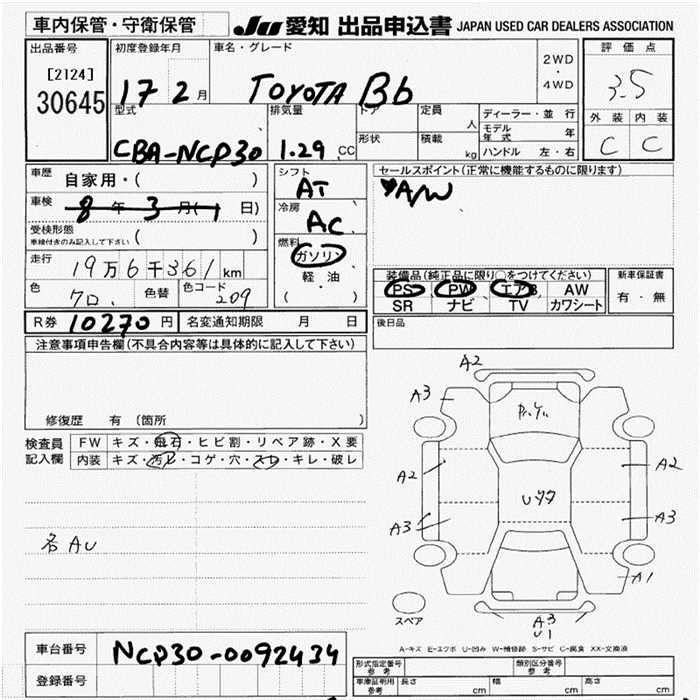 車内保管・守衛保管
JU 愛知 出品申込書 JAPAN USED CAR DEALERS ASSOCIATION
出品番号
[2124]
30645
初度登録年月
17 2月
車名・グレード
TOYOTA Bb
2WD
・
4WD
評価点
3.5
外装 内装
C C
型式
CBA-NCP30
排気量
1.29 CC
ドア
形状
定員
人
積載
kg
ディーラー・並行
モデル年式 年
ハンドル 左・右
車歴 自家用・( )
車検 8年 3月(1日)
受検形態
車検付きのみ記入して下さい ( )
走行 19万6千361km
色 クロ 色替 色コード 209
R券 10270円 名変通知期限 月 日
シフト
AT
冷房
AC
燃料
ガソリン
軽・油
( )
セールスポイント(正常に機能するものに限ります)
A/W
装備品(純正品に限り○をつけてください)
PS PW エアB AW
SR ナビ TV カワシート
新車保証書
有・無
後日品
注意事項申告欄(不具合内容等は具体的に記入して下さい)
修復歴 有(箇所 )
検査員記入欄
FW キズ・飛石・ヒビ割・リペア跡・X要
内装 キズ・汚レ・コゲ・穴・スレ・キレ・破レ
各AU
A2
A3
A2
A2
A3
A3
A1
A3
U1
スペア
A-キズ E-エクボ U-凹み W-補修跡 S-サビ C-腐食 XX-交換済
車台番号 NCP30-0092434
登録番号
形式指定番号
参考
類別区分番号
参考
車庫証明用
参考
長さ cm
幅 cm
高さ cm